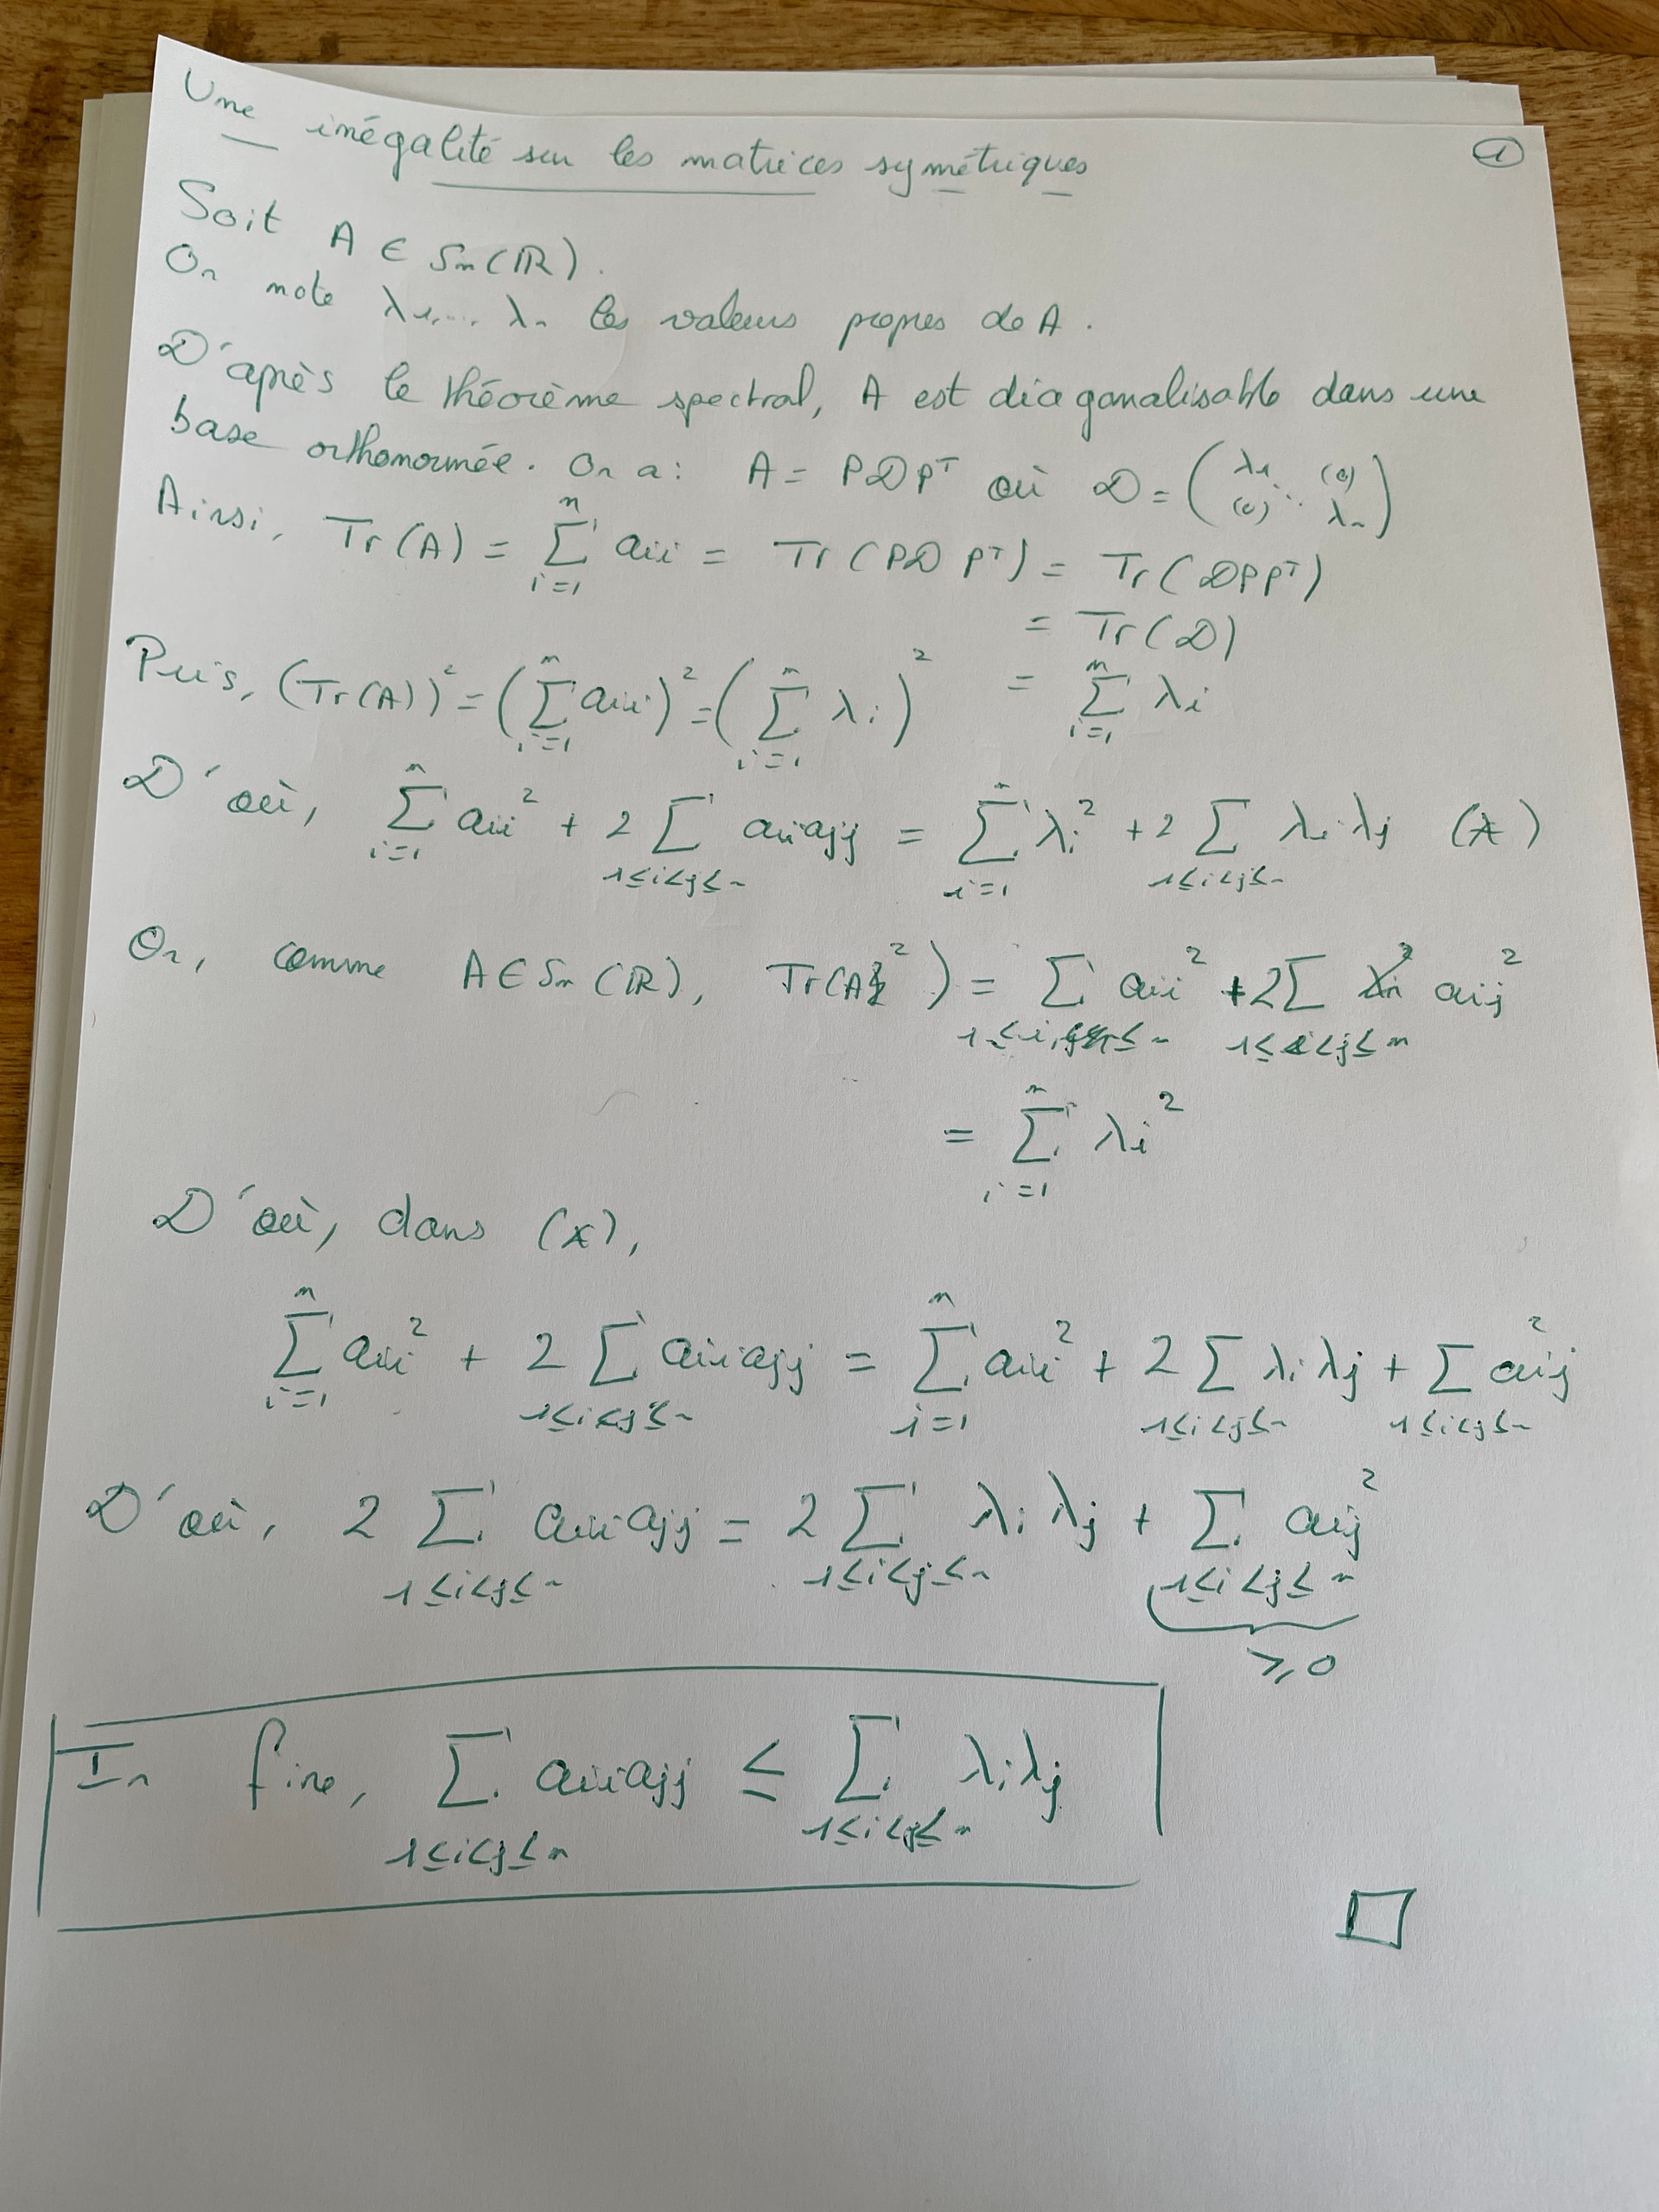 Une inégalité sur les matrices symétriques ①
Soit A ∈ Sn(ℝ).
On note λ1,... λn les valeurs propres de A.
D'après le théorème spectral, A est diagonalisable dans une
base orthonormée. On a : A = PDPᵀ où D = (λ1 (0) (0) ⋱ λn)
Ainsi, Tr(A) = ∑_{i=1}^{n} aii = Tr(PDPᵀ) = Tr(DPPᵀ)
= Tr(D)
= ∑_{i=1}^{n} λi
Puis, (Tr(A))² = (∑_{i=1}^{n} aii)² = (∑_{i=1}^{n} λi)²
D'où, ∑_{i=1}^{n} aii² + 2 ∑_{1≤i<j≤n} aii ajj = ∑_{i=1}^{n} λi² + 2 ∑_{1≤i<j≤n} λi λj (*)
Or, comme A ∈ Sn(ℝ), Tr(A²) = ∑_{1≤i≤n} aii² + 2∑_{1≤i<j≤n} aij²
= ∑_{i=1}^{n} λi²
D'où, dans (*),
∑_{i=1}^{n} aii² + 2 ∑_{1≤i<j≤n} aii ajj = ∑_{i=1}^{n} aii² + 2 ∑_{1≤i<j≤n} λi λj + ∑_{1≤i<j≤n} aij²
D'où, 2 ∑_{1≤i<j≤n} aii ajj = 2 ∑_{1≤i<j≤n} λi λj + ∑_{1≤i<j≤n} aij²
≥ 0
In fine, ∑_{1≤i<j≤n} aii ajj ≤ ∑_{1≤i<j≤n} λi λj
□